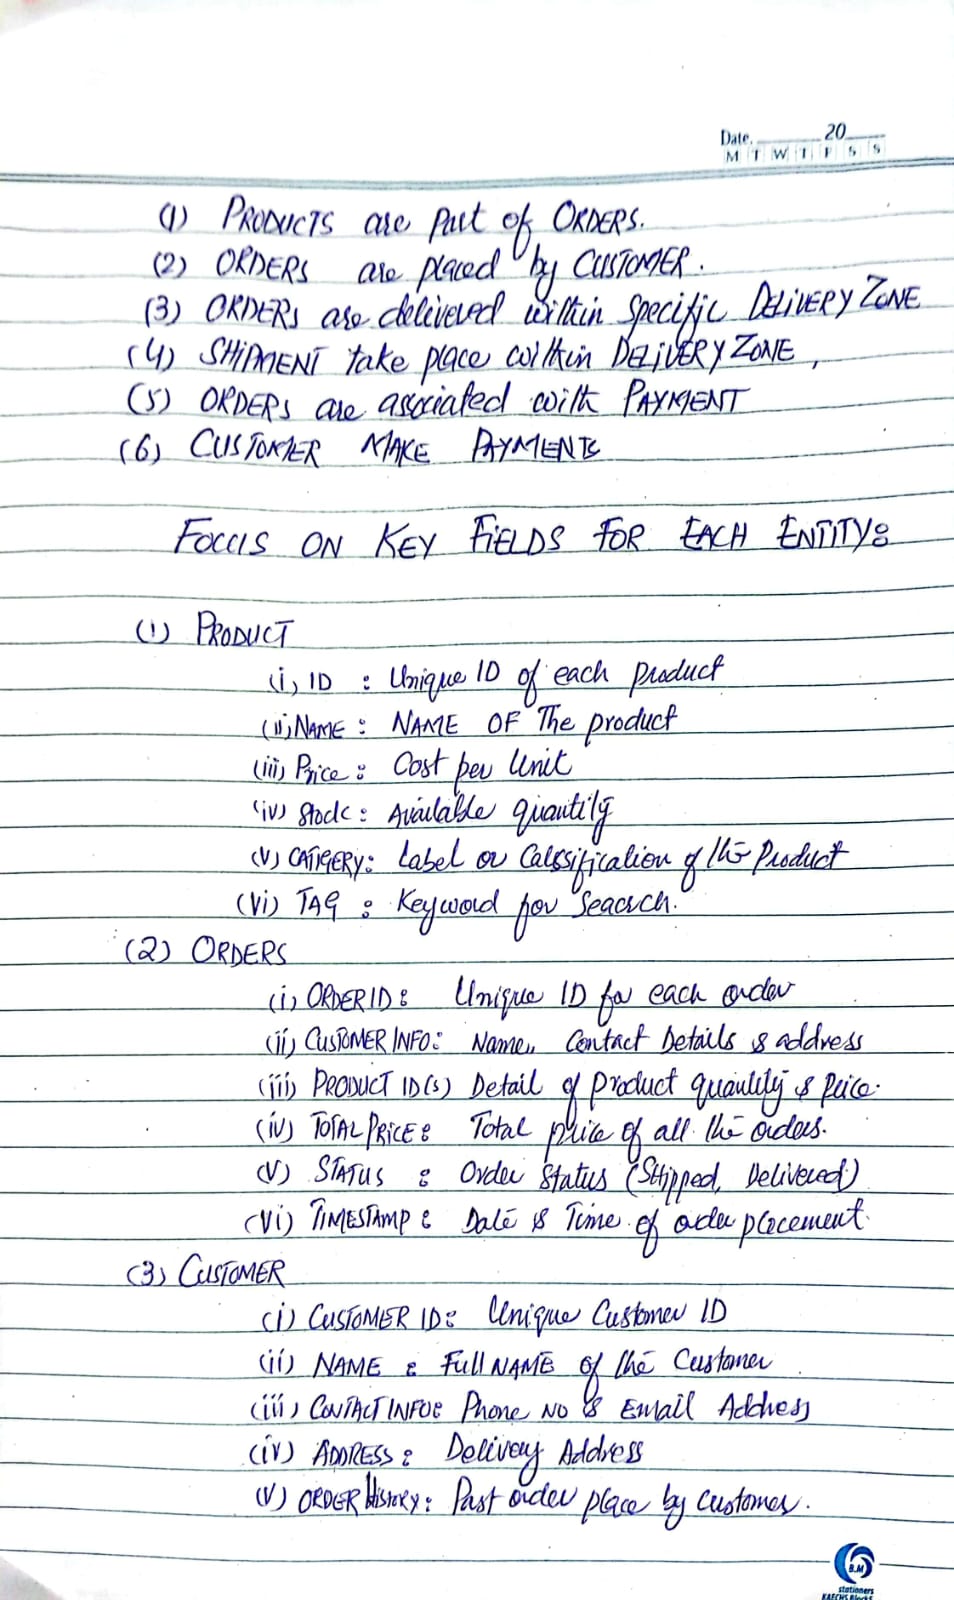 Date. 20
M T W T F S S
(1) PRODUCTS are Part of ORDERS.
(2) ORDERS are placed by CUSTOMER.
(3) ORDERS are delivered within Specific DELIVERY ZONE
(4) SHIPMENT take place within DELIVERY ZONE,
(5) ORDERS are associated with PAYMENT
(6) CUSTOMER MAKE PAYMENTS
FOCUS ON KEY FIELDS FOR EACH ENTITY:
(1) PRODUCT
(i) ID : Unique ID of each Product
(ii) NAME : NAME OF The product
(iii) Price : Cost per Unit
(iv) Stock : Available quantity
(v) CATIGERY: Label or Calssification of the Product
(vi) TAG : Keyword for Seacrch.
(2) ORDERS
(i) ORDER ID : Unique ID for each order
(ii) CUSTOMER INFO: Name,, Contact Details & address
(iii) PRODUCT ID(s) Detail of product quantity & Price.
(iv) TOTAL PRICE : Total price of all the orders.
(v) STATUS : Order Status (Shipped, Delivered)
(vi) TIMESTAMP : Date & Time of order placement.
(3) CUSTOMER
(i) CUSTOMER ID : Unique Customer ID
(ii) NAME : Full NAME of the Customer
(iii) CONTACT INFO : Phone NO & Email Address
(iv) ADDRESS : Delivery Address
(v) ORDER History : Past order place by customer.
B.M
stationers